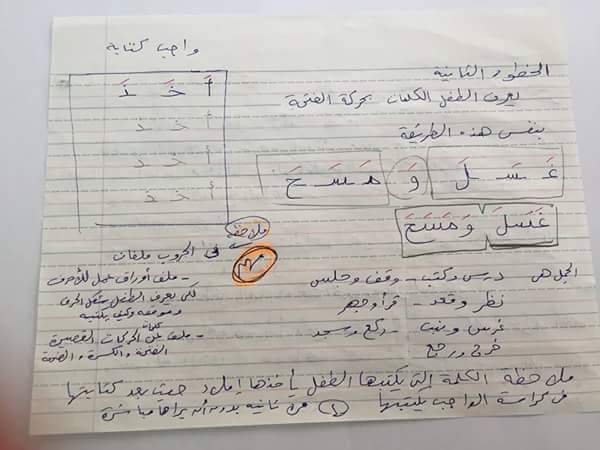 واجب كتابة
أَ خَ ذَ
أ خ ذ
أ خ ذ
أ خ ذ
الخطوة الثانية
يعرف الطفل الكلمات بحركة الفتحة
بنفس هذه الطريقة
غَ سَ لَ وَ مَ سَ حَ
غَسَلَ وَمَسَحَ
الجمل هي درس وكتب - وقف وجلس
نظر وقعد - قرأ وجهر
غرس ونبت - ركع وسجد
خرج ورجع
ملاحظة
مهم
في الجروب ملفات
- ملف أوراق عمل للأحرف
لكي يعرف الطفل شكل الحرف
وموقعه وكيف يكتبه
- ملف عن كلمات الحركات القصيرة
الفتحة والكسرة والضمة
ملاحظة الكلمة التي يكتبها الطفل يأخذها إملاء حيث بعد كتابتها
في كراسة الواجب يكتبها مرة ثانية بدون أن يراها مباشرة